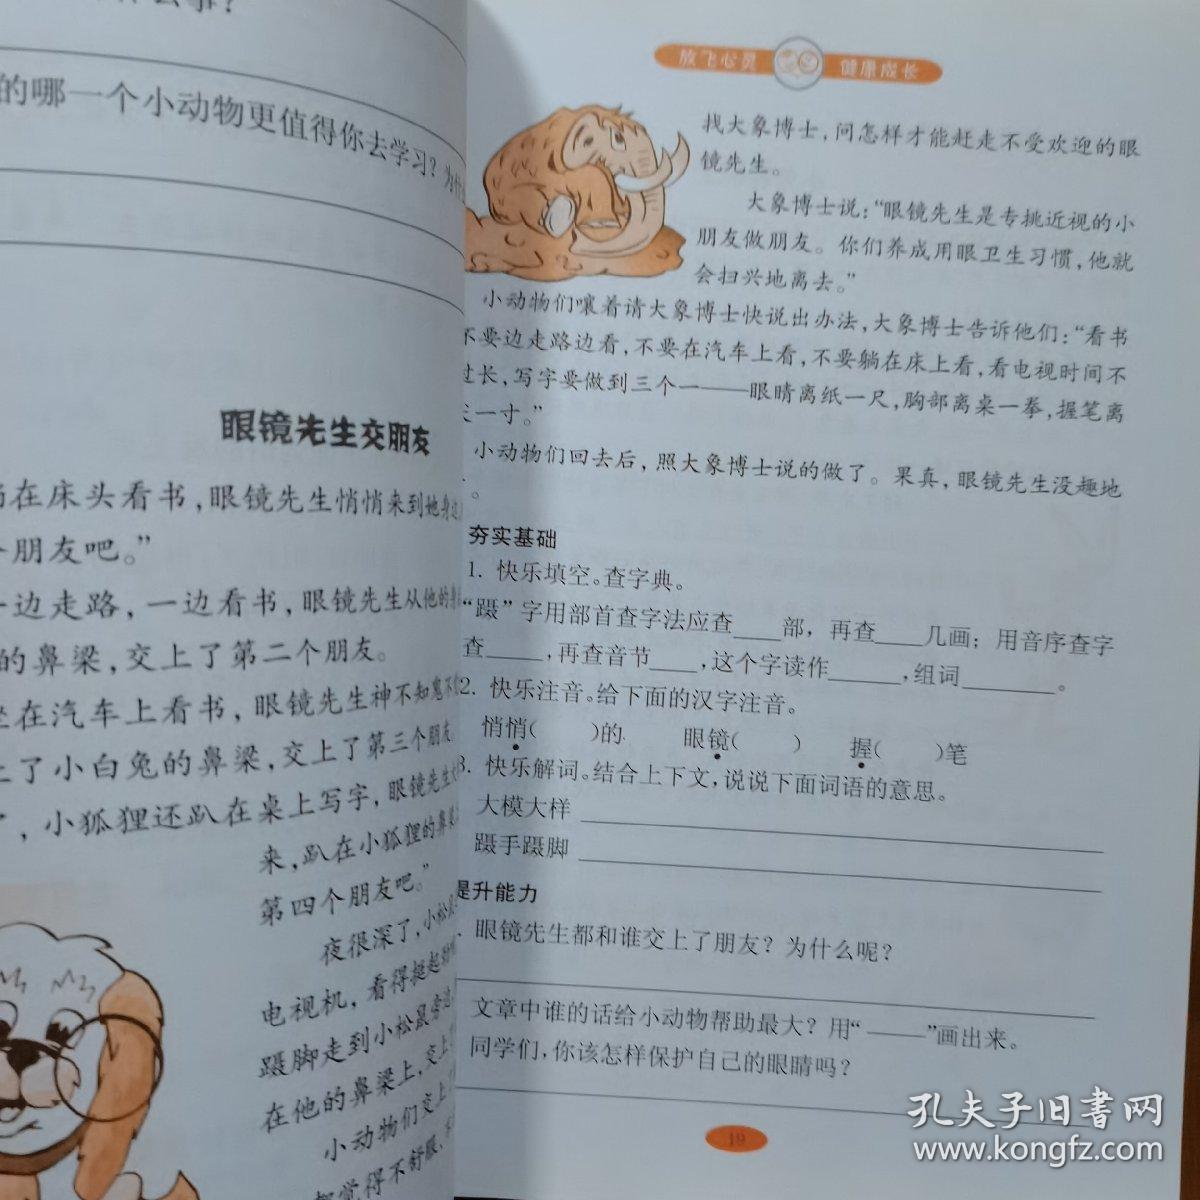 的哪一个小动物更值得你去学习？为什
眼镜先生交朋友
在床头看书，眼镜先生悄悄来到她身边
朋友吧。”
一边走路，一边看书，眼镜先生从他的身
的鼻梁，交上了第二个朋友。
坐在汽车上看书，眼镜先生神不知鬼不
上了小白兔的鼻梁，交上了第三个朋友。
，小狐狸还趴在桌上写字，眼镜先生大
来，趴在小狐狸的鼻梁
第四个朋友吧。”
夜很深了，小松鼠
电视机，看得挺起劲
蹑脚走到小松鼠旁边，
在他的鼻梁上，交上
小动物们交上了
都觉得不舒服，
放飞心灵 健康成长
找大象博士，问怎样才能赶走不受欢迎的眼
镜先生。
大象博士说：“眼镜先生是专挑近视的小
朋友做朋友。你们养成用眼卫生习惯，他就
会扫兴地离去。”
小动物们嚷着请大象博士快说出办法，大象博士告诉他们：“看书
不要边走路边看，不要在汽车上看，不要躺在床上看，看电视时间不
过长，写字要做到三个一——眼睛离纸一尺，胸部离桌一拳，握笔离
一寸。”
小动物们回去后，照大象博士说的做了。果真，眼镜先生没趣地
。
夯实基础
1. 快乐填空。查字典。
“蹑”字用部首查字法应查____部，再查____几画；用音序查字
查_____，再查音节____，这个字读作______，组词________。
2. 快乐注音。给下面的汉字注音。
悄悄( )的 眼镜( ) 握( )笔
3. 快乐解词。结合上下文，说说下面词语的意思。
大模大样
蹑手蹑脚
提升能力
眼镜先生都和谁交上了朋友？为什么呢？
文章中谁的话给小动物帮助最大？用“——”画出来。
同学们，你该怎样保护自己的眼睛吗？
19
孔夫子旧书网
www.kongfz.com